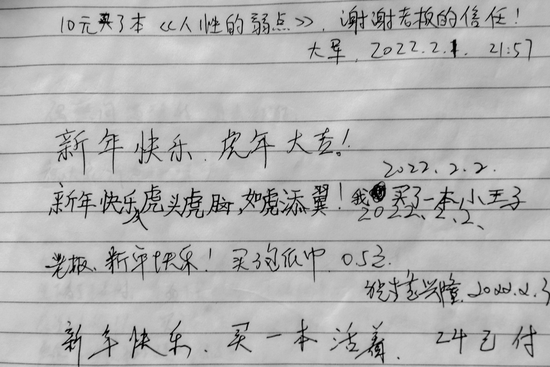 10元买了本《人性的弱点》,谢谢老板的信任!
大军,2022.2.1. 21:57
新年快乐.虎年大吉!
2022.2.2.
新年快乐,虎头虎脑,如虎添翼!我买了一本小王子
2022.2.2.
老板.新年快乐!买3包纸巾 0.5元
兴隆.2022.2.3
新年快乐.买一本活着.24已付